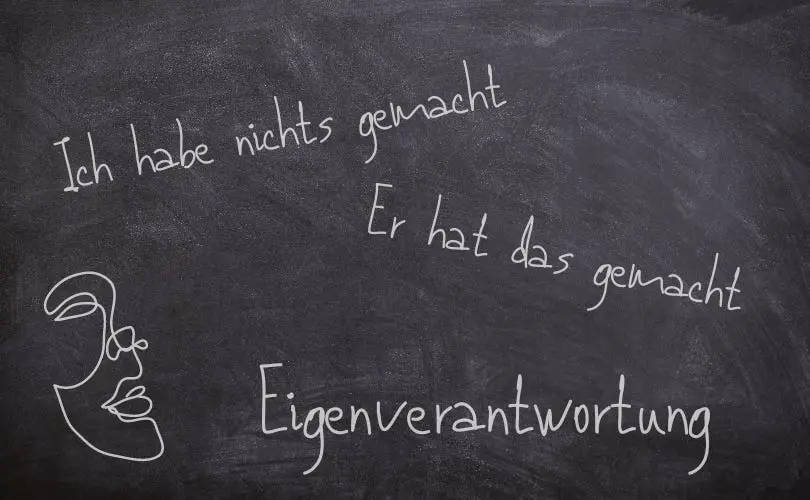 Ich habe nichts gemacht
Er hat das gemacht
Eigenverantwortung